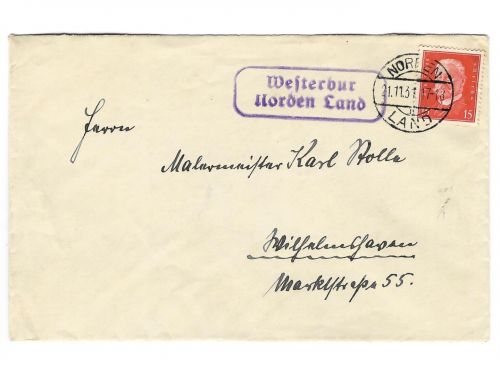 Westerbur
Norden Land
NORDEN
1.11.31 17-18
LAND
15
Herrn
Malermeister Karl Stolle
Wilhelmshaven
Marktstraße 55.